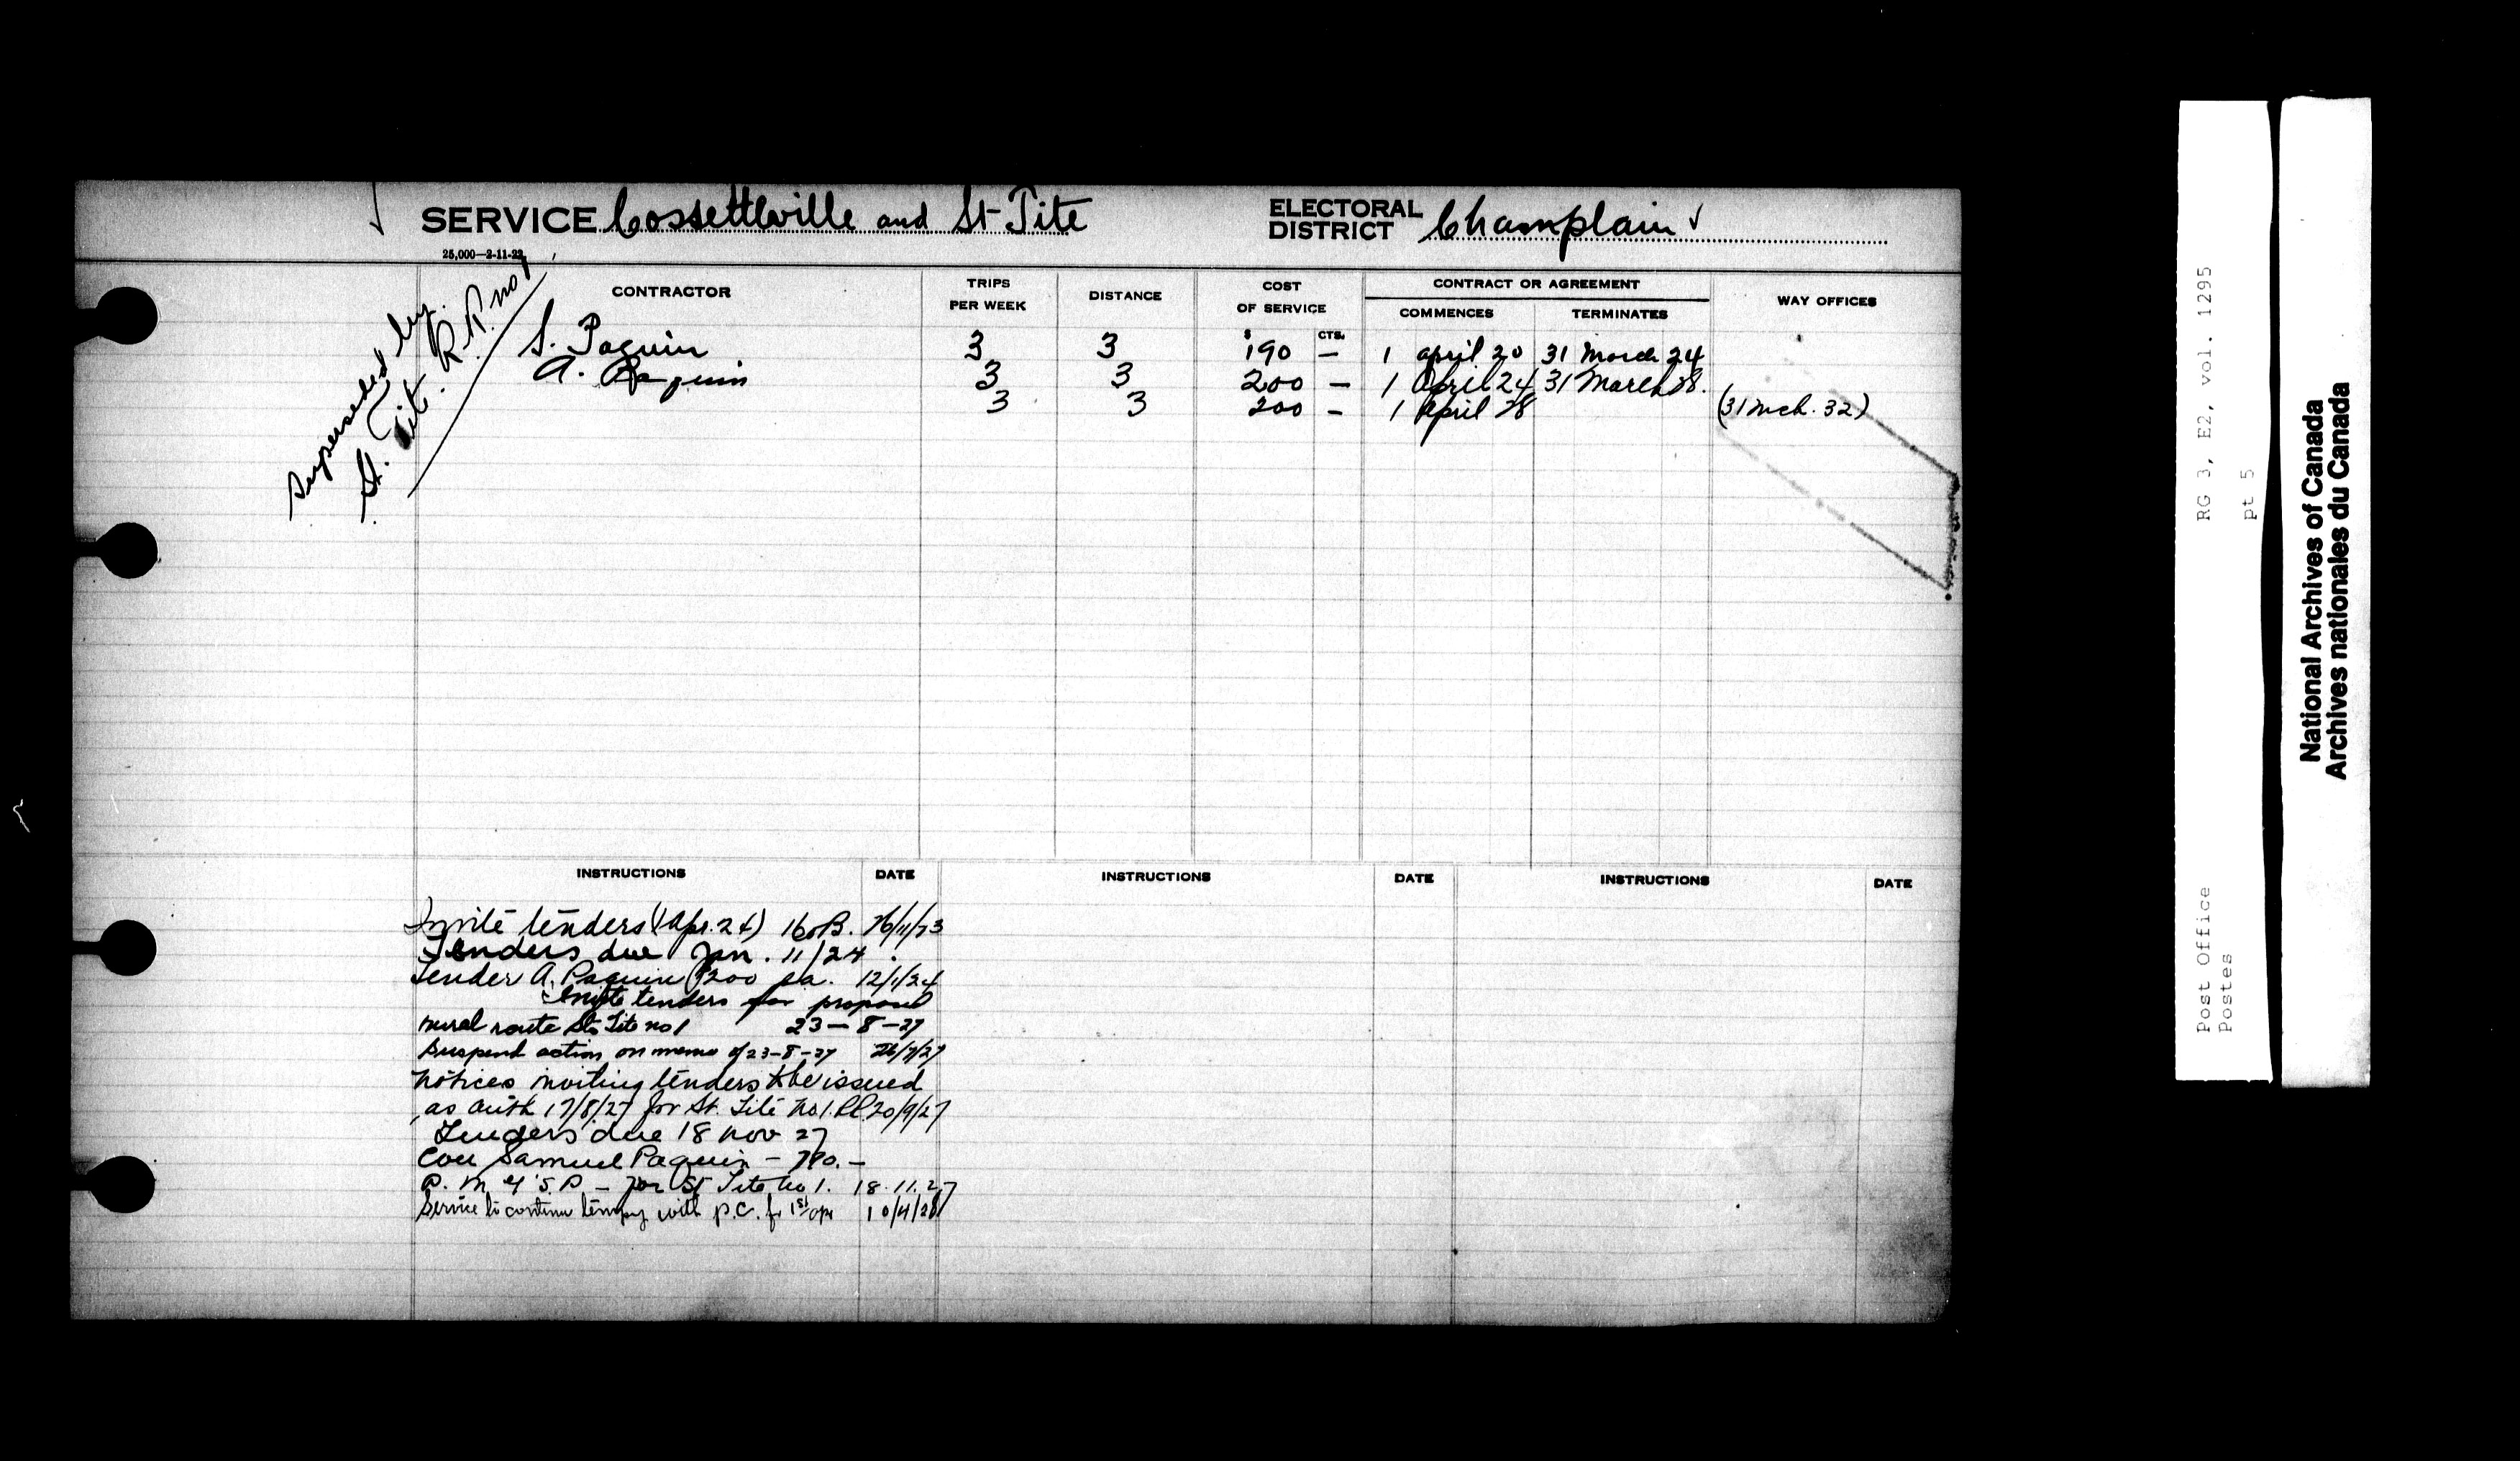 SERVICE Cossetteville and St Tite
ELECTORAL DISTRICT Champlain
25,000—2-11-22
Superseded by
St. Tite R.R. no 1
CONTRACTOR TRIPS PER WEEK DISTANCE COST OF SERVICE CONTRACT OR AGREEMENT WAY OFFICES
COMMENCES TERMINATES
$ CTS.
S. Paquin 3 3 190 — 1 april 20 31 March 24
A. Paquin 3 3 200 — 1 April 24 31 March 28.
3 3 200 — 1 April 28 (31 Mch. 32)
INSTRUCTIONS DATE INSTRUCTIONS DATE INSTRUCTIONS DATE
Invite tenders (Apr. 24) 16oB. 26/11/23
Tenders due Jan. 11/24.
Tender A. Paquin $200 pa. 12/1/24
Invite tenders for proposed
rural route St Tite no 1 23—8—27
Suspend action on memo of 23-8-27
Notices inviting tenders to be issued
as auth 17/8/27 for St. Tite No 1. RR 20/9/27
Tenders due 18 Nov 27
Samuel Paquin —
for St Tite No 1. 18.11.27
Service to continue tempy with p.c. fr 1st apr 10/4/28
RG 3, E2, vol. 1295
pt 5
Post Office
Postes
National Archives of Canada
Archives nationales du Canada